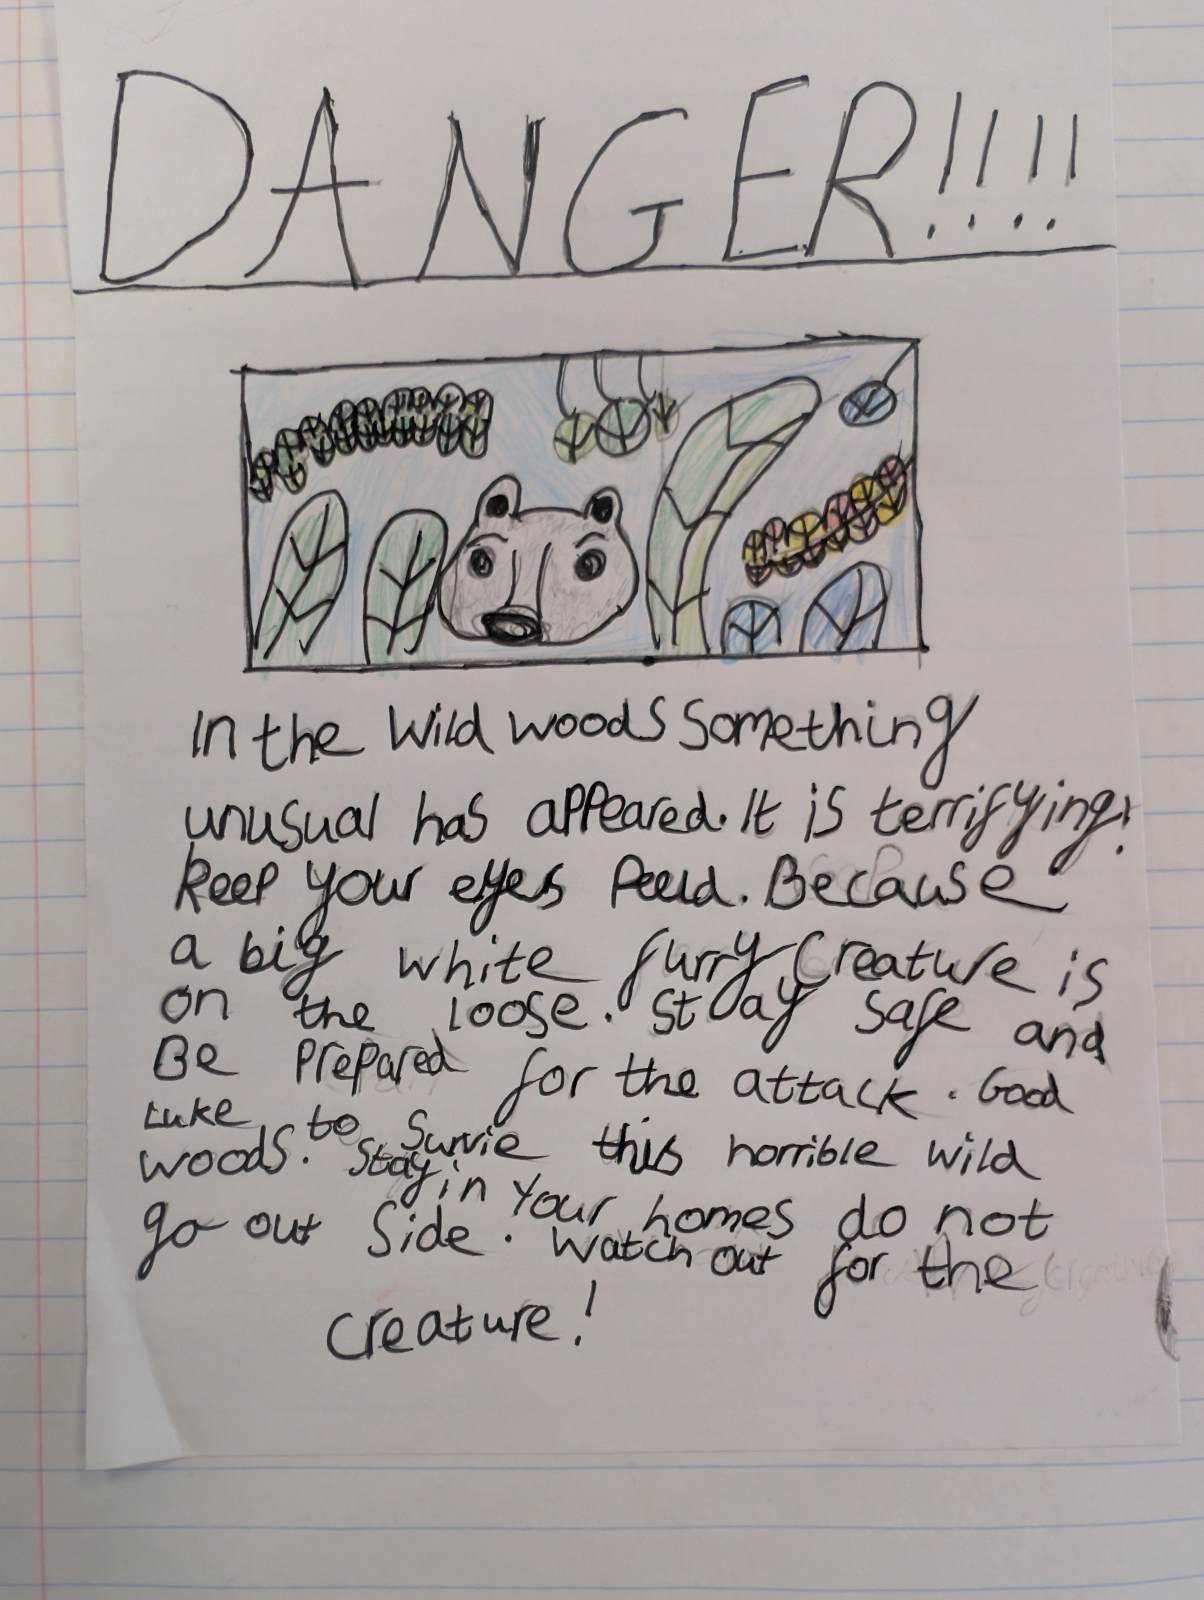 DANGER!!!!
In the Wild woods Something
unusual has appeared. It is terrifying!
keep your eyes Peeld. Because
a big white furry Creature is
on the loose. Stay safe and
Be Prepared for the attack. Good
Luke to Survie this horrible wild
woods. Stay in your homes do not
go out Side. Watch out for the
creature!